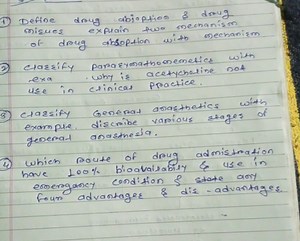 ① Define drug absorption & drug
misues explain two mechanism
of drug absoption with mechanism
② classify Parasympathomemetics with
exa . why is acetycholine not
use in clinical practice.
③ classify General anasthetics with
example discribe various stages of
general anasthesia.
④ which route of drug admistration
have 100% bioavaibality & use in
emergancy condition & state any
four advantages & dis-advantages